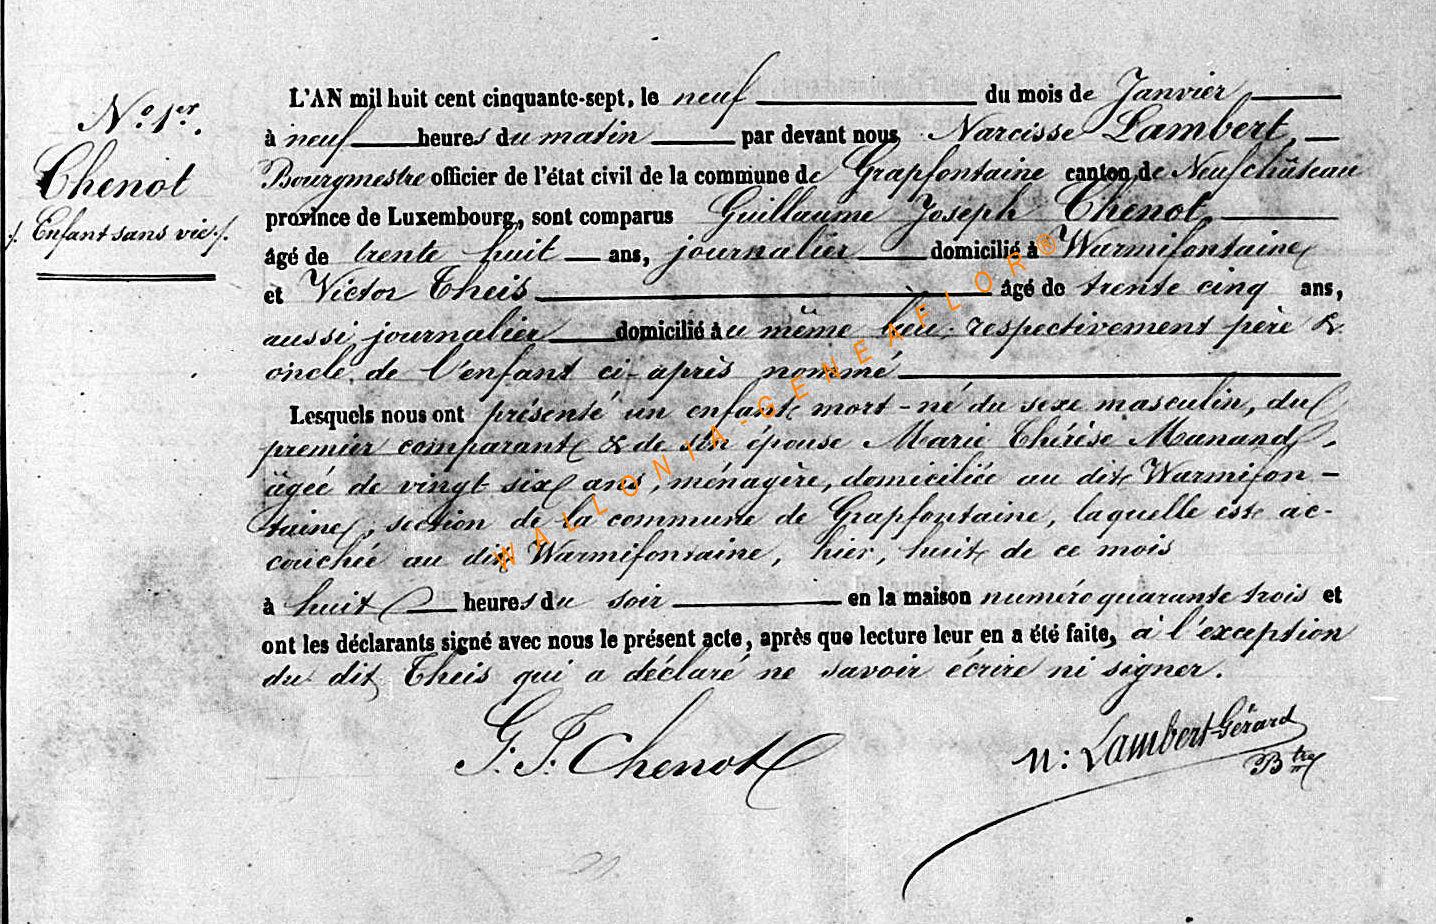 N.° 1.er.
Chenot
./. Enfant sans vie ./.
L'AN mil huit cent cinquante-sept, le neuf du mois de Janvier
à neuf heures du matin par devant nous Narcisse Lambert,
Bourgmestre officier de l'état civil de la commune de Grapfontaine canton de Neufchâteau
province de Luxembourg, sont comparus Guillaume Joseph Chenot,
âgé de trente huit ans, journalier domicilié à Warmifontaine
et Victor Theis âgé de trente cinq ans,
aussi journalier domicilié au même lieu, respectivement père &
oncle de l'enfant ci-après nommé
Lesquels nous ont présenté un enfant mort-né du sexe masculin, du
premier comparant & de son épouse Marie Thérèse Munand,
âgée de vingt six ans, ménagère, domiciliée au dit Warmifon-
taine, section de la commune de Grapfontaine, laquelle est ac-
couchée au dit Warmifontaine, hier, huit de ce mois
à huit heures du soir en la maison numéro quarante trois et
ont les déclarants signé avec nous le présent acte, après que lecture leur en a été faite, à l'exception
du dit Theis qui a déclaré ne savoir écrire ni signer.
G. J. Chenot
N: Lambert-Gérard
Btre
WALLONIA-GENEAFLOR®